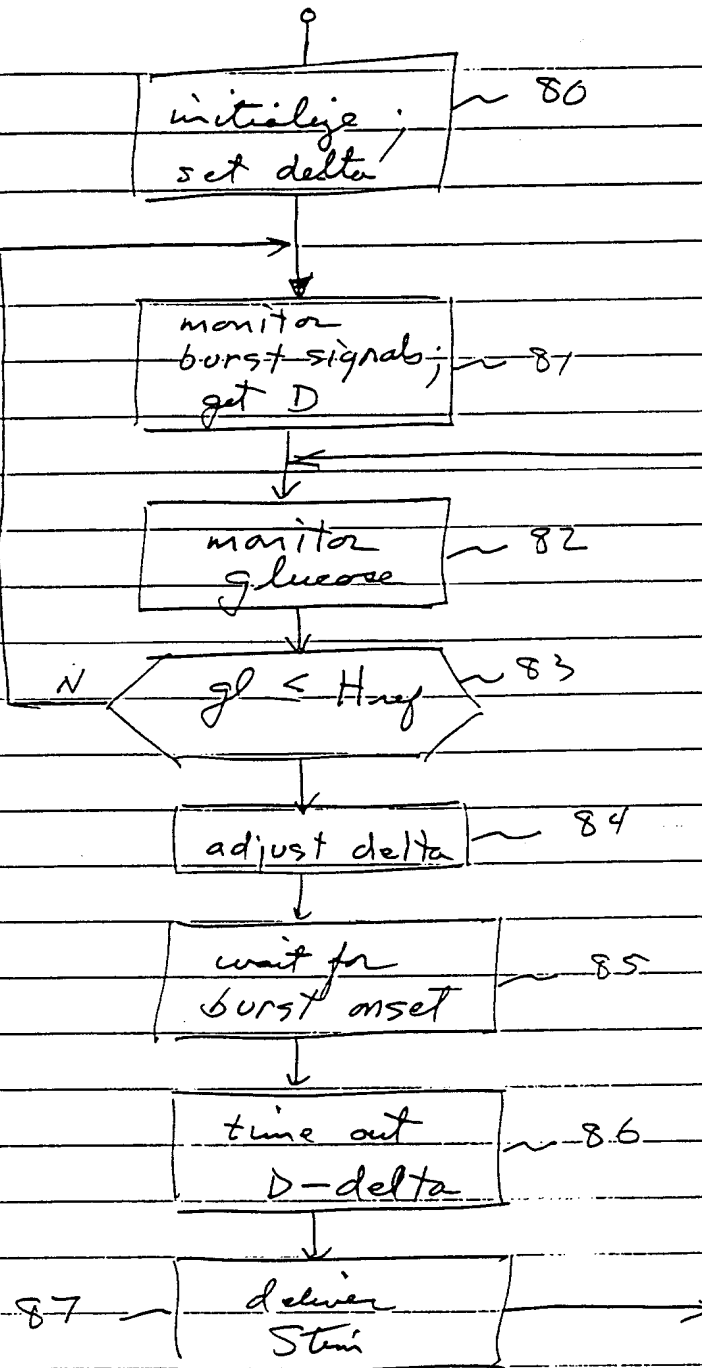 initialize; 80
set delta
monitor
burst signals; 81
get D
monitor 82
glucose
N gl < Href 83
adjust delta 84
wait for 85
burst onset
time out 86
D-delta
87 deliver
Stim